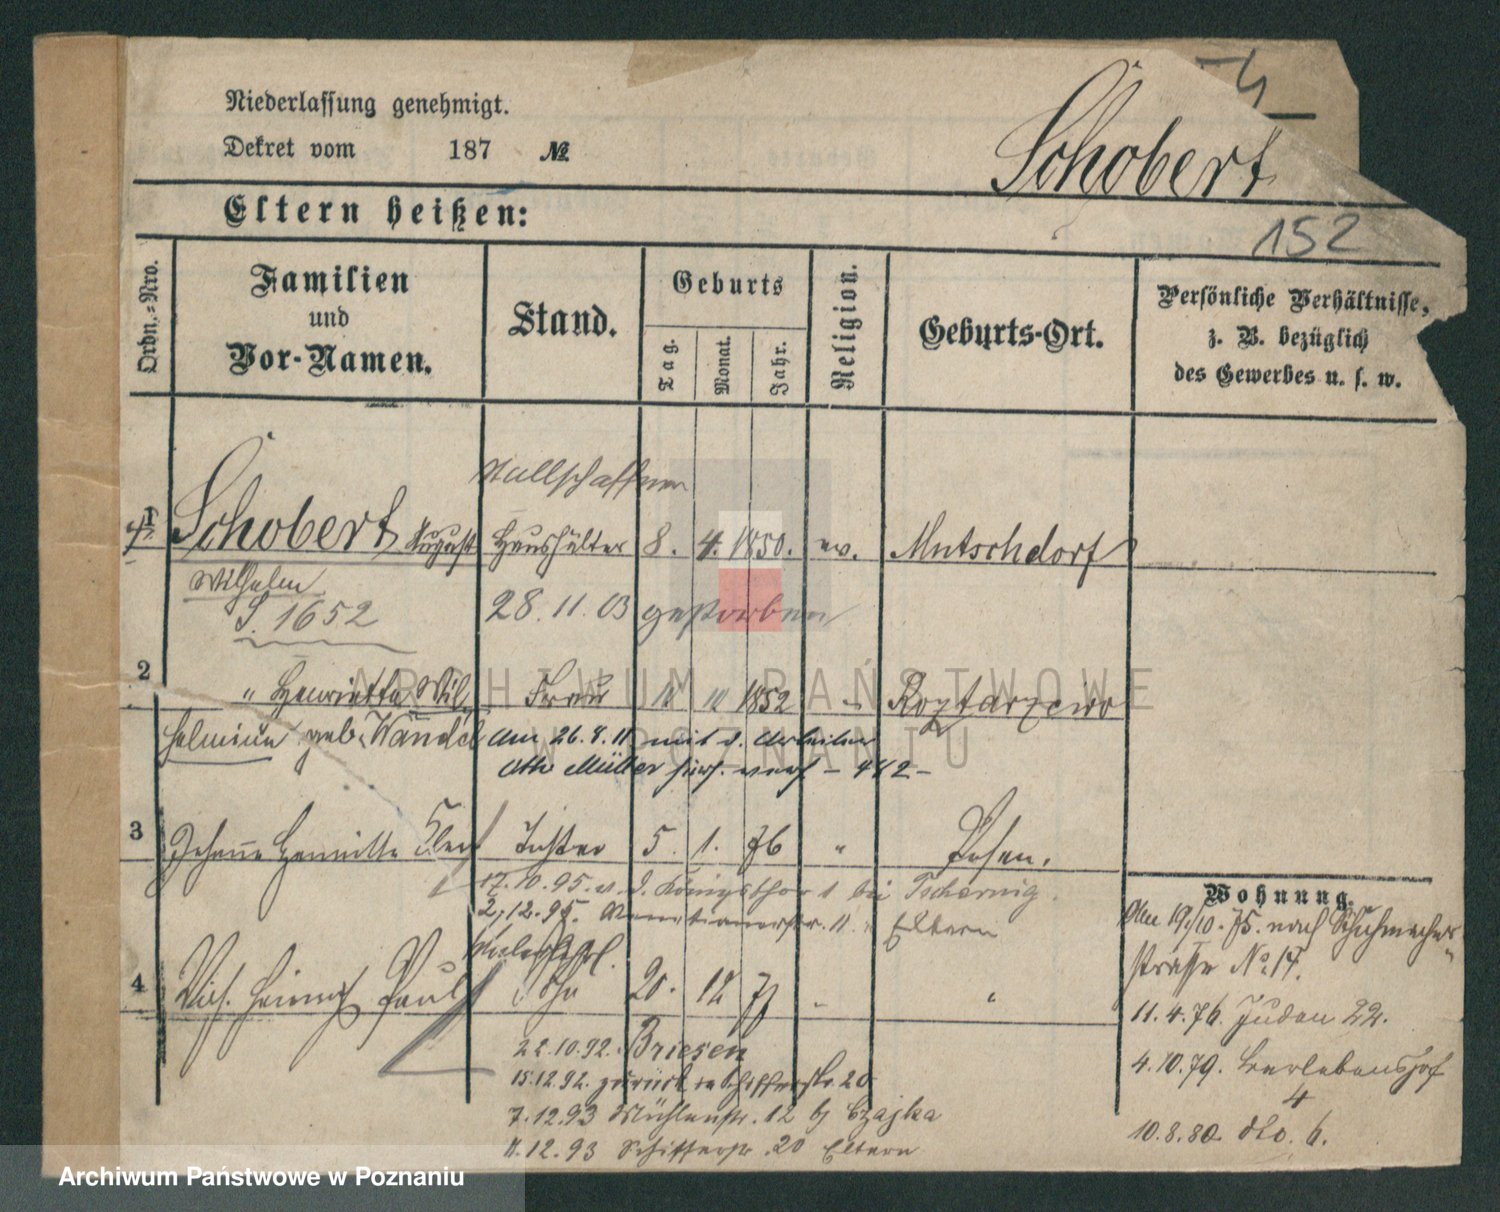 Niederlassung genehmigt.
Dekret vom 187 №
Schobert
152
Eltern heißen:
Ordn.-Nro.
Familien
und
Vor-Namen.
Stand.
Geburts
Tag.
Monat.
Jahr.
Religion.
Geburts-Ort.
Persönliche Verhältnisse,
z. B. bezüglich
des Gewerbes u. s. w.
1 Schobert August Haushälter 8. 4. 1850. ev. Mutschdorf
Wilhelm
S. 1652 28.11.03 gestorben
2 " Henriette Wil Frau " " 1852 Roztarzewo
helmine geb. Wandel am 26.8.11 mit d. Arbeiter
Otto Müller
3 Johanna Henriette Tochter 5. 1. 76 " Posen.
17.10.95. Königsthor 1 bei Tschernig
2.12.95. Venetianerstr. 11. Eltern
4 Wilh. Heinrich Paul Sohn 20. 12 77 " "
22.10.92. Briesen
15.12.92. zurück Schifferstr. 20
7.12.93 Mühlenstr. 12 b/ Czajka
11.12.93 Schifferstr. 20 Eltern
Wohnung.
Am 19/10.75. nach Schuhmacher
strasse No. 17.
11.4.76. Juden 22.
4.10.79.
4
10.8.80. dto. 6.
ARCHIWUM PAŃSTWOWE
W POZNANIU
Archiwum Państwowe w Poznaniu